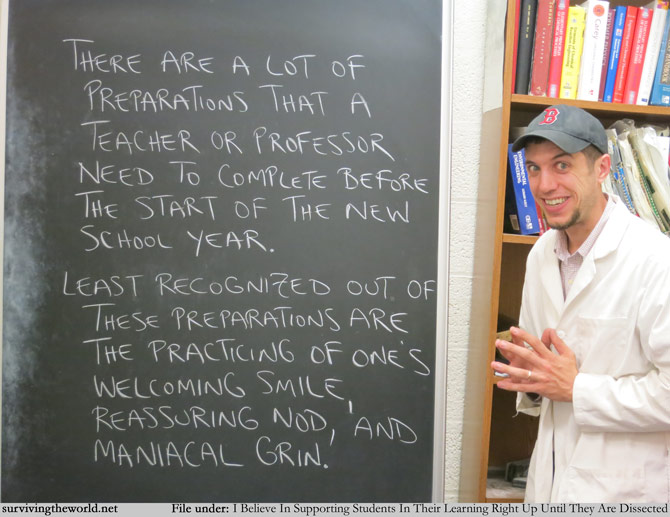 THERE ARE A LOT OF
PREPARATIONS THAT A
TEACHER OR PROFESSOR
NEED TO COMPLETE BEFORE
THE START OF THE NEW
SCHOOL YEAR.
LEAST RECOGNIZED OUT OF
THESE PREPARATIONS ARE
THE PRACTICING OF ONE'S
WELCOMING SMILE,
REASSURING NOD, AND
MANIACAL GRIN.
B
Carey
survivingtheworld.net
File under: I Believe In Supporting Students In Their Learning Right Up Until They Are Dissected